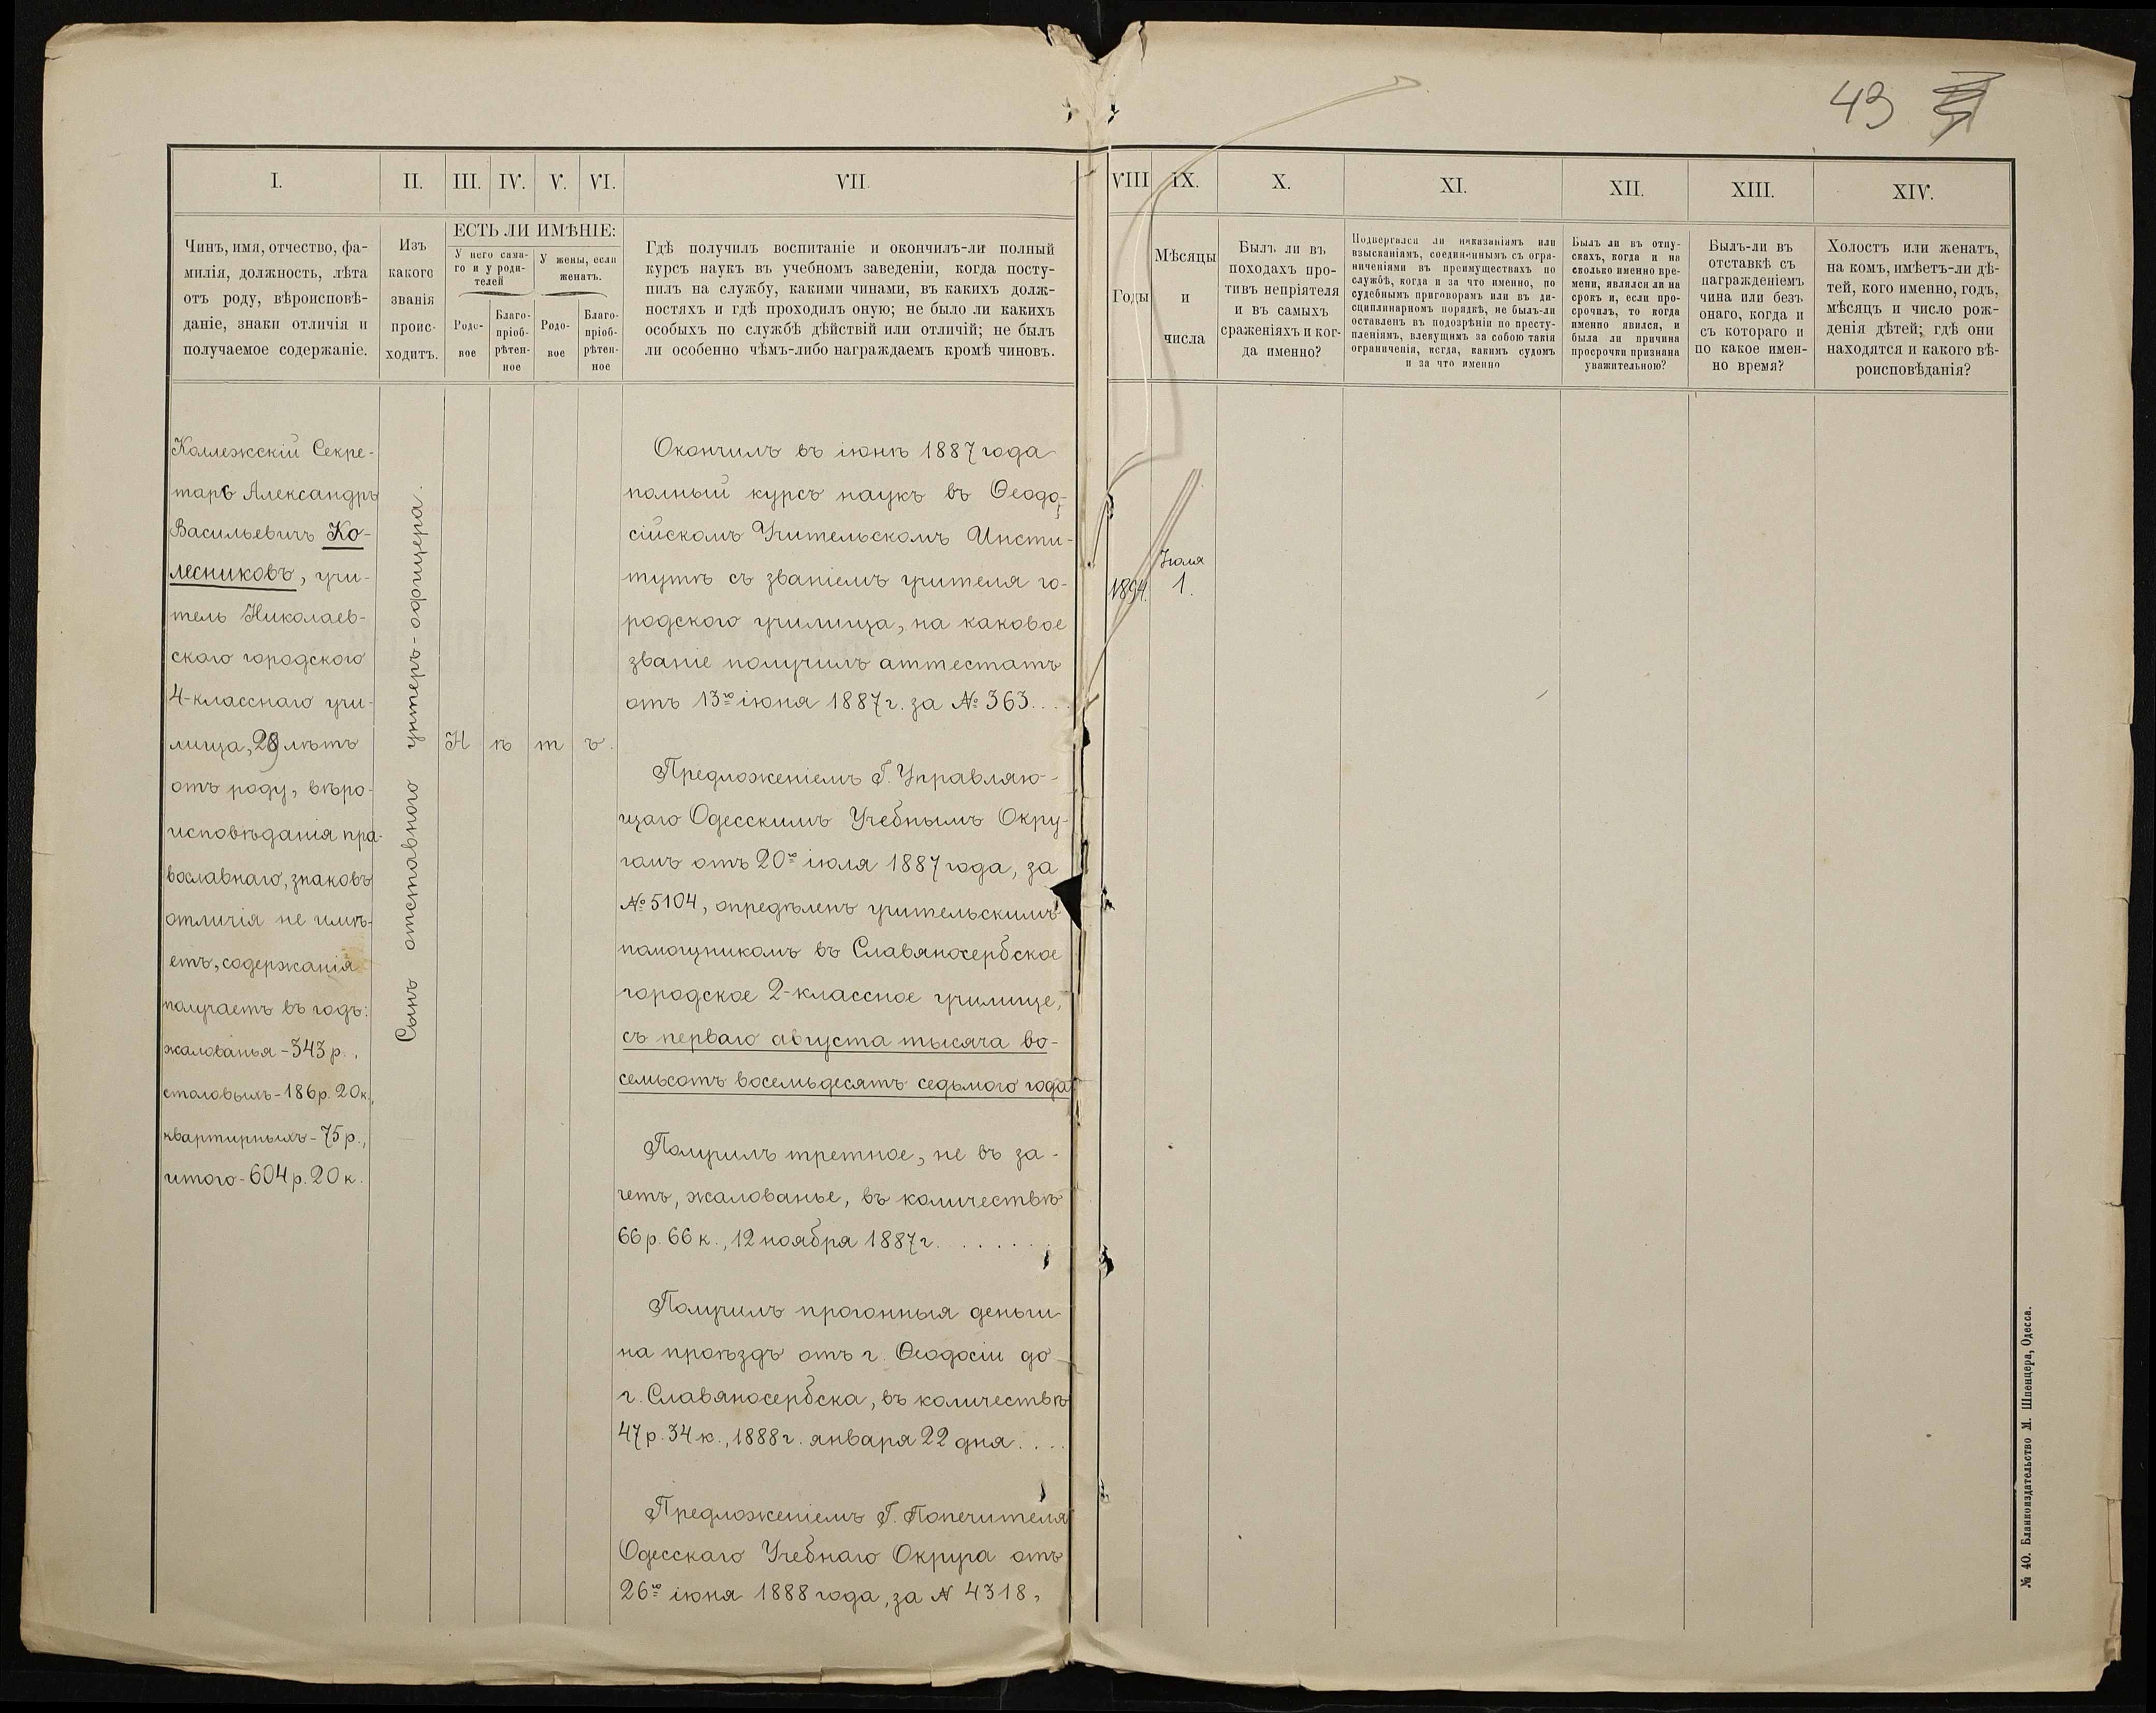 43
I.
II.
III.
IV.
V.
VI.
VII.
VIII
IX.
X.
XI.
XII.
XIII.
XIV.
Чинъ, имя, отчество, фа-
милія, должность, лѣта
отъ роду, вѣроисповѣ-
даніе, знаки отличія и
получаемое содержаніе.
Изъ
какого
званія
проис-
ходитъ.
ЕСТЬ ЛИ ИМѢНІЕ:
У него сама-
го и у роди-
телей
У жены, если
женатъ.
Родо-
вое
Благо-
пріоб-
рѣтен-
ное
Родо-
вое
Благо-
пріоб-
рѣтен-
ное
Гдѣ получилъ воспитаніе и окончилъ-ли полный
курсъ наукъ въ учебномъ заведеніи, когда посту-
пилъ на службу, какими чинами, въ какихъ долж-
ностяхъ и гдѣ проходилъ оную; не было ли какихъ
особыхъ по службѣ дѣйствій или отличій; не былъ
ли особенно чѣмъ-либо награждаемъ кромѣ чиновъ.
Годы
Мѣсяцы
и
числа
Былъ ли въ
походахъ про-
тивъ непріятеля
и въ самыхъ
сраженіяхъ и ког-
да именно?
Подвергался ли наказаніямъ или
взысканіямъ, соединеннымъ съ огра-
ниченіями въ преимуществахъ по
службѣ, когда и за что именно, по
судебнымъ приговорамъ или въ ди-
сциплинарномъ порядкѣ, не былъ-ли
оставленъ въ подозрѣніи по престу-
пленіямъ, влекущимъ за собою такія
ограниченія, когда, какимъ судомъ
и за что именно
Былъ ли въ отпу-
скахъ, когда и на
сколько именно вре-
мени, являлся ли на
срокъ и, если про-
срочилъ, то когда
именно явился, и
была ли причина
просрочки признана
уважительною?
Былъ-ли въ
отставкѣ съ
награжденіемъ
чина или безъ
онаго, когда и
съ котораго и
по какое имен-
но время?
Холостъ или женатъ,
на комъ, имѣетъ-ли дѣ-
тей, кого именно, годъ,
мѣсяцъ и число рож-
денія дѣтей; гдѣ они
находятся и какого вѣ-
роисповѣданія?
Коллежскій Секре-
тарь Александръ
Васильевичъ Ко-
лесниковъ, учи-
тель Николаев-
скаго городского
4-класснаго учи-
лища, 28 лѣтъ
отъ роду, вѣро-
исповѣданія пра-
вославнаго, знаковъ
отличія не имѣ-
етъ, содержанія
получаетъ въ годъ:
жалованья - 343 р.,
столовыхъ - 186 р. 20 к.,
квартирныхъ - 75 р.,
итого - 604 р. 20 к.
Сынъ отставного унтеръ-офицера.
Н ѣ т ъ.
Окончилъ въ іюнѣ 1887 года
полный курсъ наукъ въ Ѳеодо-
сійскомъ Учительскомъ Инсти-
тутѣ съ званіемъ учителя го-
родского училища, на каковое
званіе получилъ аттестатъ
отъ 13го іюня 1887 г. за № 363....
Предложеніемъ Г. Управляю-
щаго Одесскимъ Учебнымъ Окру-
гомъ отъ 20го іюля 1887 года, за
№ 5104, опредѣленъ учительскимъ
помощникомъ въ Славяносербское
городское 2-классное училище,
съ перваго августа тысяча во-
семьсотъ восемьдесятъ седьмого года
Получилъ третное, не въ за-
четъ, жалованье, въ количествѣ
66 р. 66 к., 12 ноября 1887 г. . . . . . .
Получилъ прогонныя деньги
на проѣздъ отъ г. Ѳеодосіи до
г. Славяносербска, въ количествѣ
47 р. 34 к., 1888 г. января 22 дня....
Предложеніемъ Г. Попечителя
Одесскаго Учебнаго Округа отъ
26го іюня 1888 года, за N 4318,
Іюля
1894. 1.
№ 40. Бланкоиздательство М. Шпенцера, Одесса.